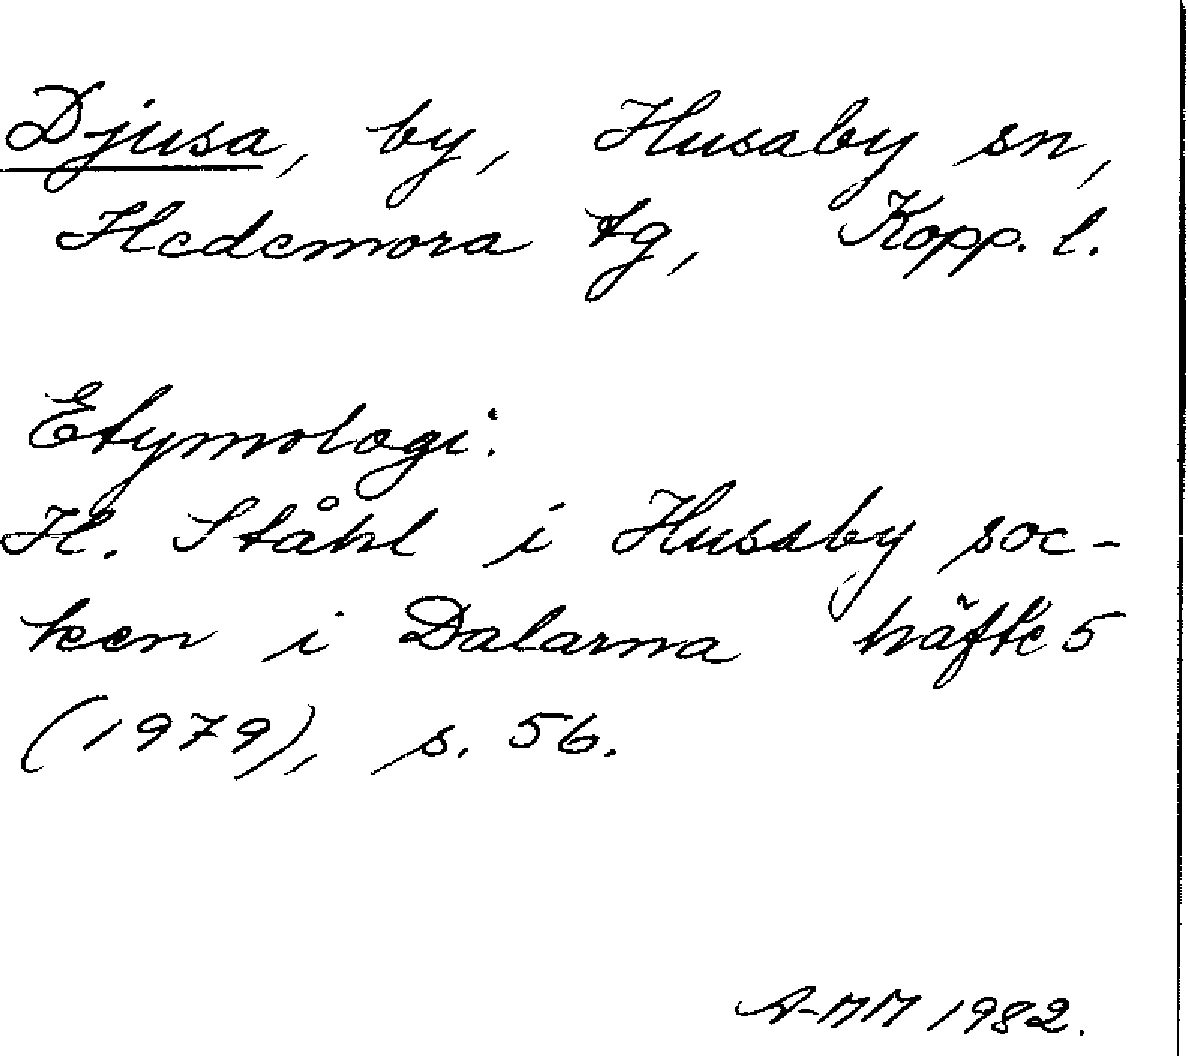 Djusa, by, Husaby sn,
Hedemora tg, Kopp. l.
Etymologi:
H. Ståhl i Husaby soc-
ken i Dalarna häfte 5
(1979), s. 56.
A-MM 1982.